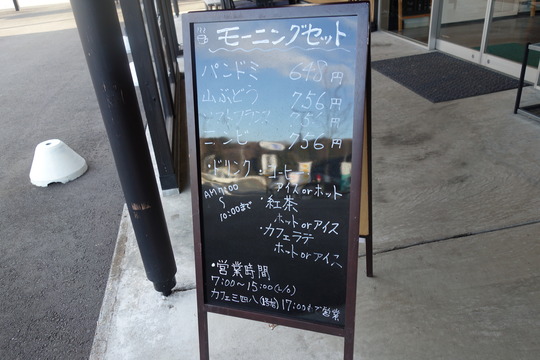 モーニングセット
パンドミ 648円
山ぶどう 756円
756円
756円
・ドリンク・コーヒー
アイスorホット
AM7:00
〜
10:00まで
・紅茶
ホットorアイス
・カフェラテ
ホットorアイス
・営業時間
7:00〜15:00(L/O)
カフェ三四八 17:00まで営業